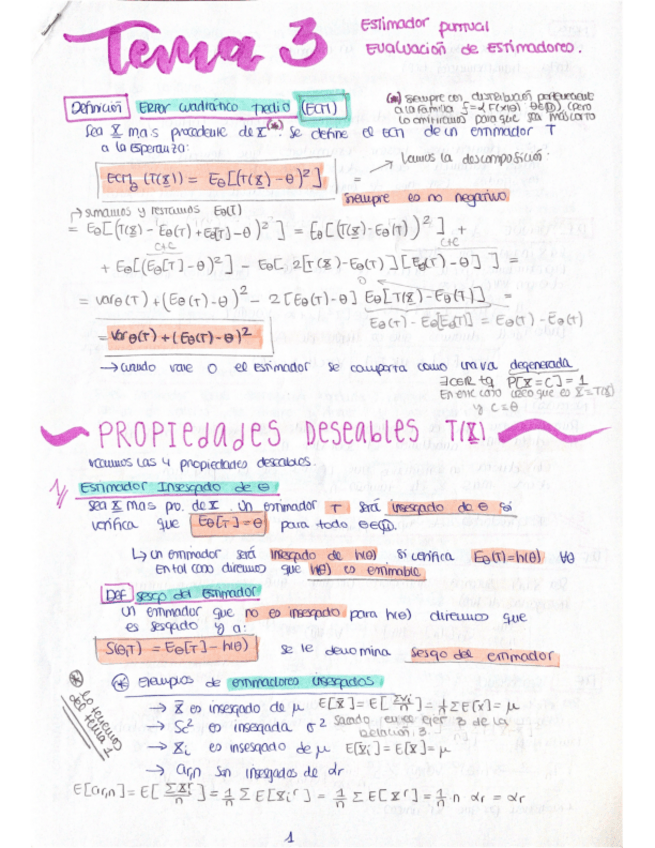 Tema 3
Estimador puntual
Evaluación de Estimadores.
Definición Error cuadrático medio (ECM)
(*) siempre con distribución perteneciente
a la familia
lo omitiremos para que sea más corto
Sea X m.a.s procedente de X(*). Se define el ecm de un estimador T
a la esperanza:
ECMθ (T(X)) = Eθ[(T(X) - θ)²] =
→ Veamos la descomposición.
siempre es no negativo
→ sumamos y restamos Eθ(T)
= Eθ[(T(X) - Eθ(T) + Eθ[T] - θ)²] = Eθ[(T(X) - Eθ(T))²] +
cte
+ Eθ[(Eθ[T] - θ)²] - Eθ[2[T(X) - Eθ(T)][Eθ(T) - θ]] =
cte
= varθ(T) + (Eθ(T) - θ)² - 2[Eθ(T) - θ] Eθ[T(X) - Eθ(T)] =
0
Eθ(T) - Eθ[Eθ[T]] = Eθ(T) - Eθ(T)
= varθ(T) + (Eθ(T) - θ)²
→ cuando vale 0 el estimador se comporta como una va degenerada
∃c∈R tq P[X = C] = 1
En este caso
y c = θ
PROPIEDADES DESEABLES T(X)
veamos las 4 propiedades deseables.
1/ Estimador Insesgado de θ
sea X mas pro. de X. Un estimador T será insesgado de θ si
verifica que Eθ[T] = θ para todo θ∈Θ.
↳ un estimador será insesgado de h(θ) si verifica Eθ(T) = h(θ) ∀θ
En tal caso diremos que h(θ) es estimable
Def sesgo del Estimador
un estimador que no es insesgado para h(θ) diremos que
es sesgado y a:
S(θ,T) = Eθ[T] - h(θ) se le denomina sesgo del estimador
* lo tenemos del tema 1
* Ejemplos de estimadores insesgados
→ X̄ es insesgado de μ E[X̄] = E[ΣXi/n] = 1/n ΣE[X] = μ
→ Sc² es insesgada σ² sando en ese ejer 3 de la
relación 3.
→ Xi es insesgado de μ E[Xi] = E[X] = μ
→ ar,n son insesgados de αr
E[ar,n] = E[ΣXiʳ/n] = 1/n Σ E[Xiʳ] = 1/n Σ E[Xʳ] = 1/n n αr = αr
1